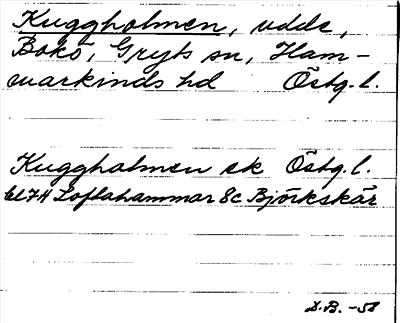 Kuggholmen, udde,
Bokö, Gryts sn, Ham-
markinds hd Östg. l.
Kuggholmen ek Östg. l.
bl 74 Loftahammar 8c Björkskär
D.B. -58